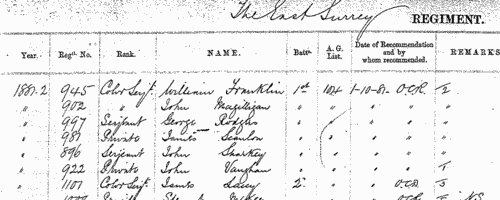 The East Surrey REGIMENT.
Year. Regtl. No. Rank. NAME. Battn. A. G. List. Date of Recommendation and by whom recommended. REMARKS
1881-2 945 Color Serjt. William Franklin 1st 104 1-10-81 O.C.R. 2
" 902 " John Magilligan " " " " "
" 997 Serjeant George Rodgers " " " " "
" 987 Private James Scanlon " " " " "
" 896 Serjeant John Sharkey " " " " "
" 922 Private John Vaughan " " " " 1
" 1107 Color Serjt. James Lacey 2 " " O.C.R. 3